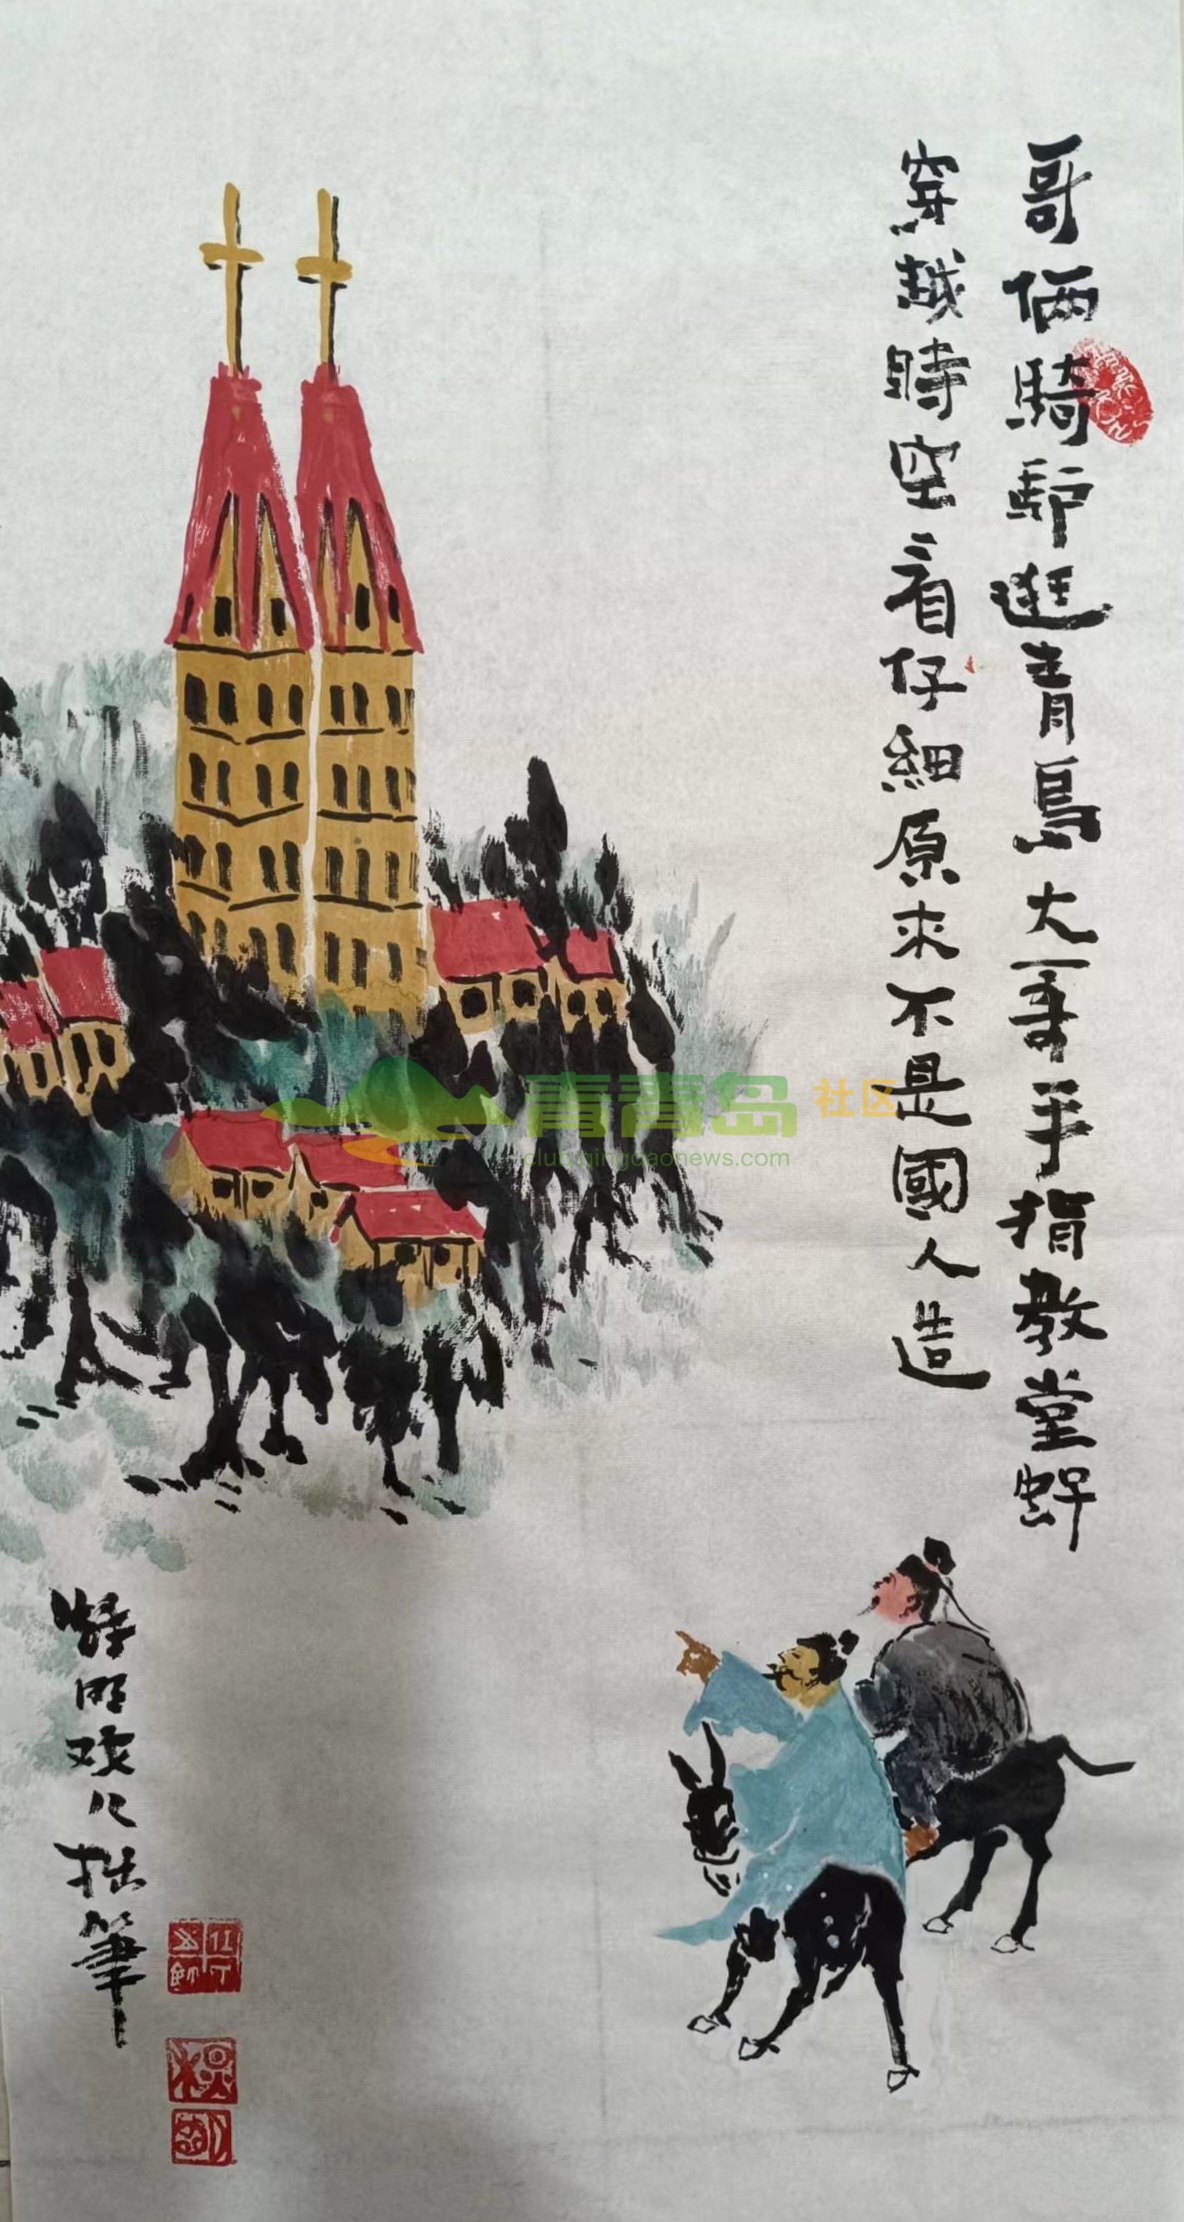 哥俩騎驴逛青島大哥手指教堂好
穿越時空看仔細原来不是國人造
青青岛社区
club.qingdaonews.com
明戏人拙筆